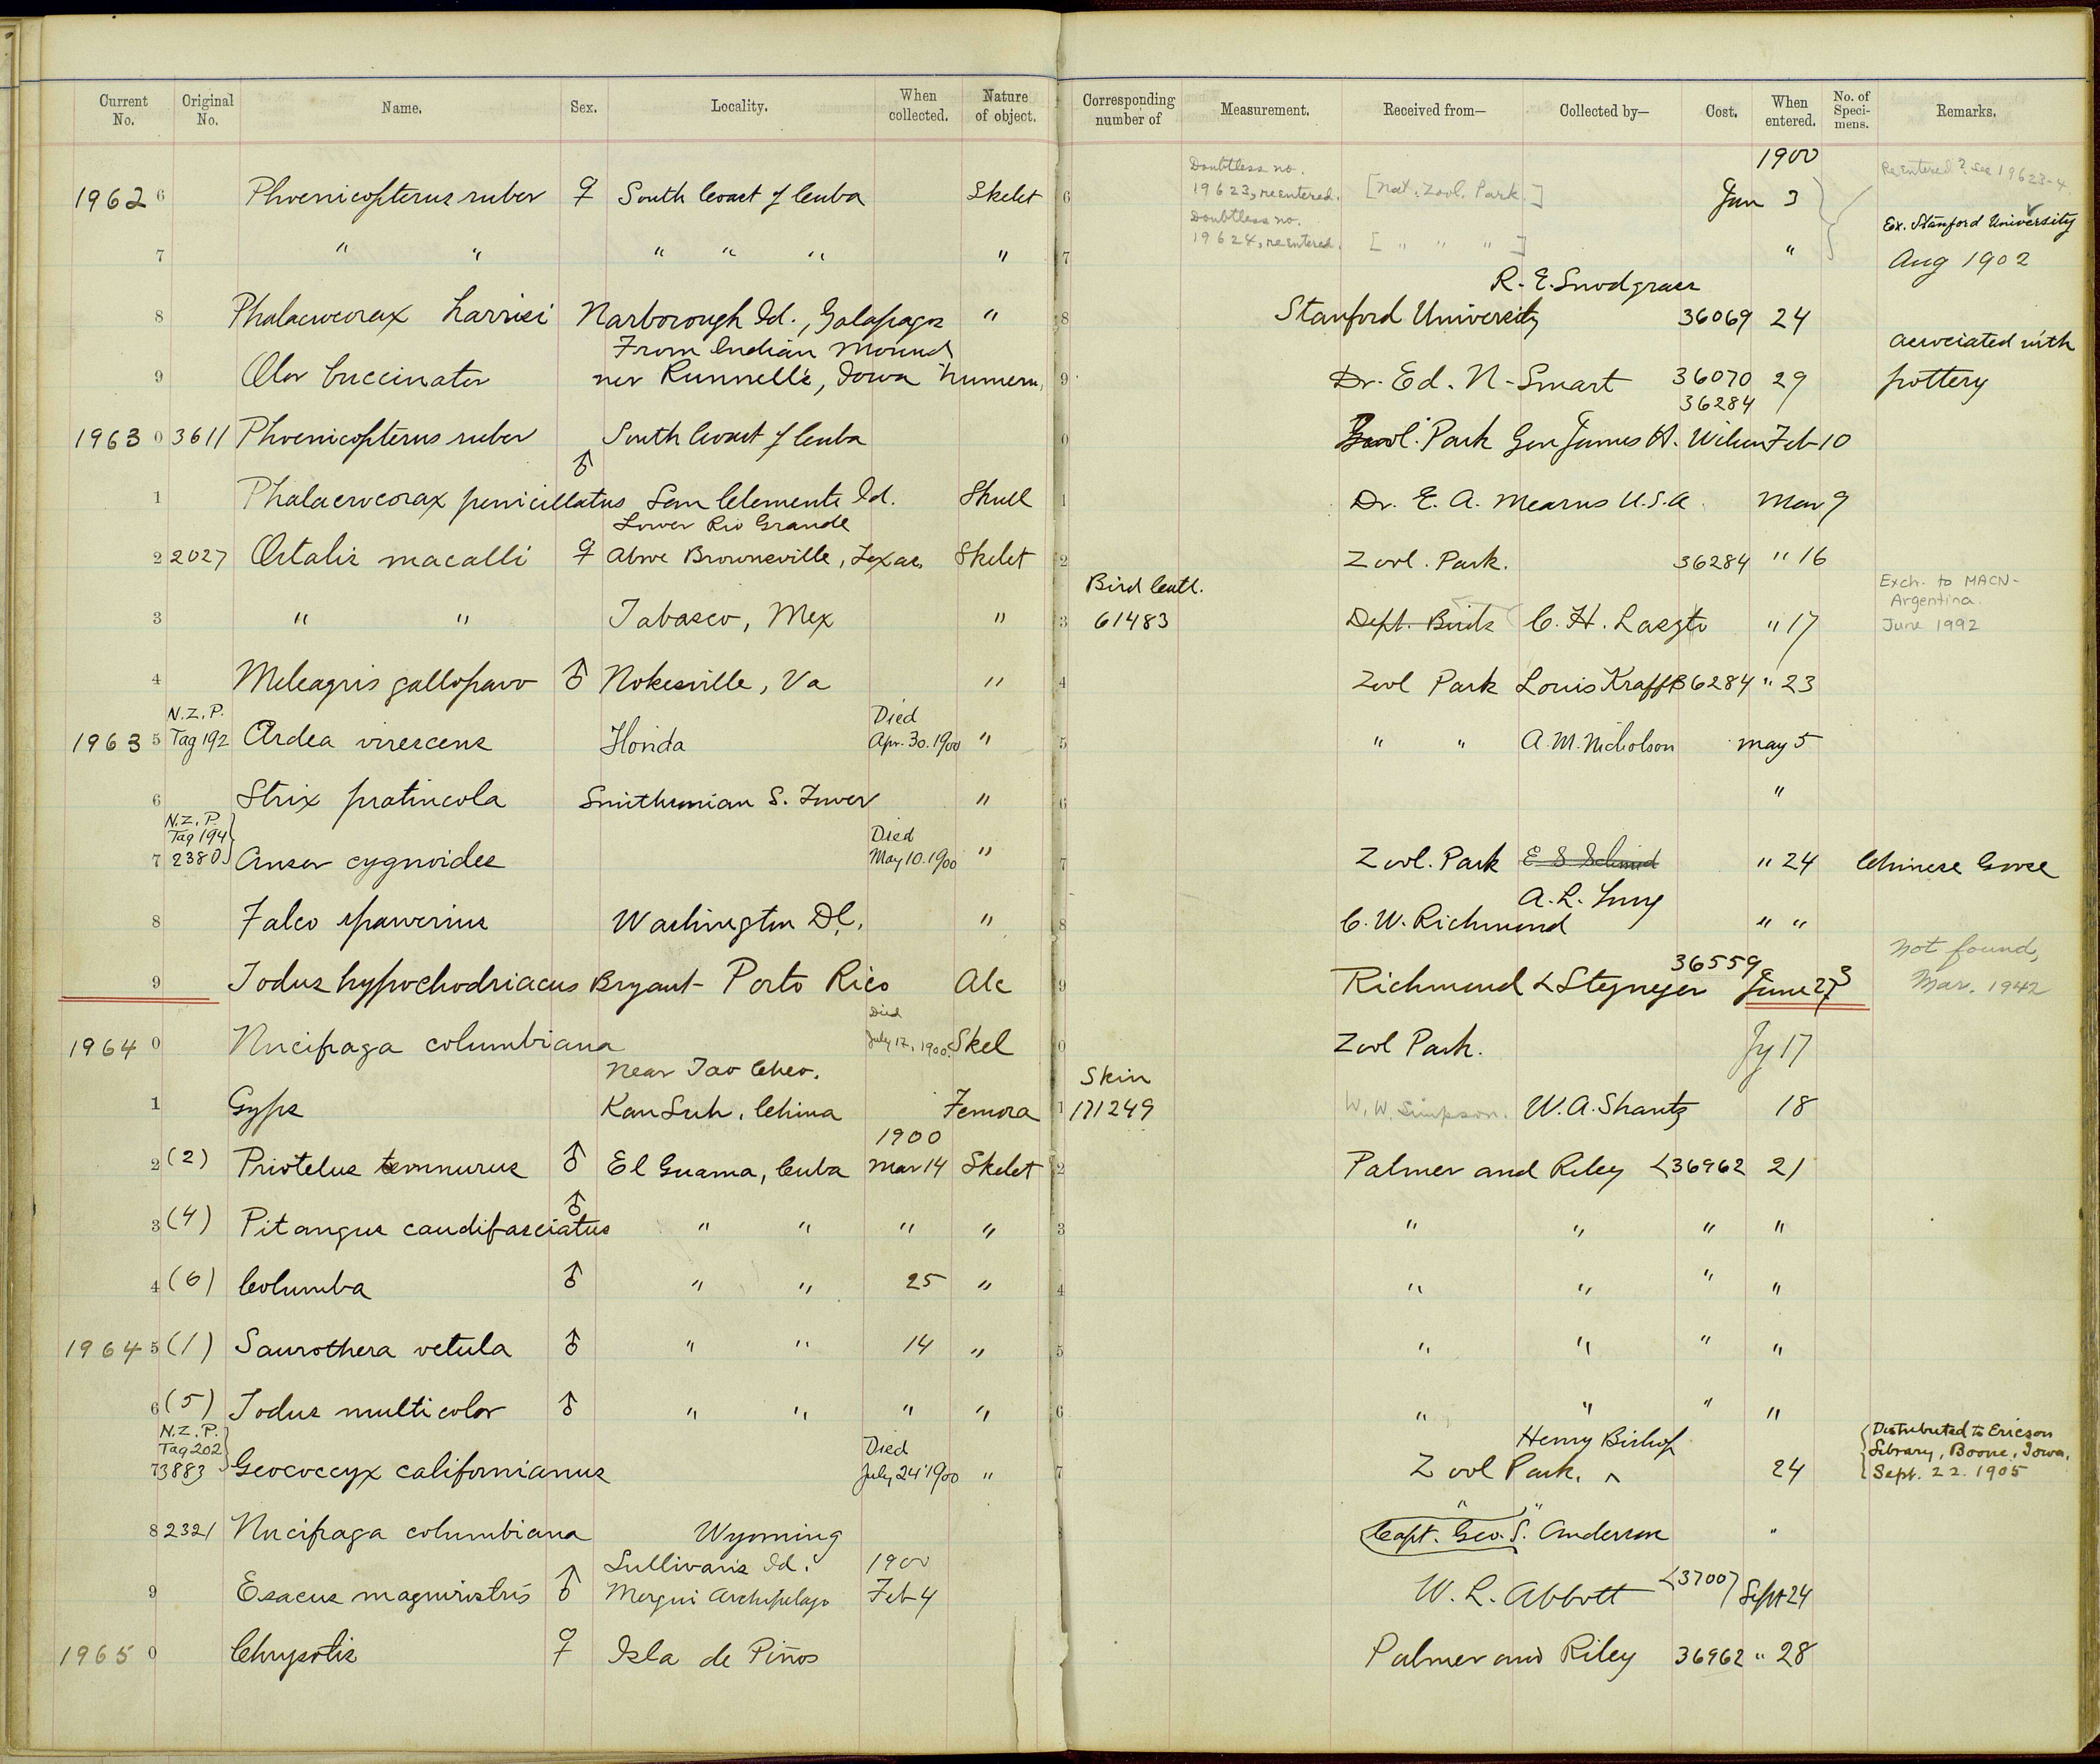 Current No. Original No. Name. Sex. Locality. When collected. Nature of object. Corresponding number of Measurement. Received from— Collected by— Cost. When entered. No. of Speci-mens. Remarks.
1900
Doubtless no. Reentered? See 19623-4
1962 6 Phoenicopterus ruber ♀ South Coast of Cuba Skelet 6 19623, reentered. [Nat. Zool. Park.] Jan 3
Doubtless no. Ex. Stanford University
7 " " " " " " 7 19624, reentered. [ " " " ] " Aug 1902
R. E. Snodgrass
8 Phalacrocorax harrisi Narborough Id., Galapagos " 8 Stanford University 36069 24
From Indian Mound associated with
9 Olor buccinator ner Runnells, Iowa humerus 9 Dr. Ed. N. Smart 36070 29 pottery
36284
1963 0 3611 Phoenicopterus ruber South Coast of Cuba 0 Zool. Park Gen James H. Wilson Feb 10
1 Phalacrocorax penicillatus ♂ San Clemente Id. Skull 1 Dr. E. A. Mearns U.S.A. Mar 9
Lower Rio Grande
2 2027 Ortalis macalli ♀ Above Brownsville, Texas, Skelet 2 Zool. Park. 36284 " 16
Bird Catl. Exch. to MACN- Argentina.
3 " " Tabasco, Mex " 3 61483 Dept. Birds C. H. Laszto " 17 June 1992
4 Meleagris gallopavo ♂ Nokesville, Va " 4 Zool Park Louis Krafft 36284 " 23
N.Z.P. Died
1963 5 Tag 192 Ardea virescens Florida Apr. 30. 1900 " 5 " " A. M. Nicholson May 5
6 Strix pratincola Smithsonian S. Tower " 6 "
N.Z.P. Tag 194 Died
7 2380 Anser cygnoides May 10. 1900 " 7 Zool. Park E S Schmid " 24 Chinese Goose
A. L.
8 Falco sparverius Washington D.C. " 8 C. W. Richmond " "
36559 Not found,
9 Todus hypochodriacus Bryant - Porto Rico Alc 9 Richmond & Stejneger June 27 Mar. 1942
Died
1964 0 Nucifraga columbiana July 17, 1900. Skel 0 Zool Park. Jy 17
Near Tao Cheo. Skin
1 Gyps Kan Suh, China Femora 1 171249 W. W. Simpson. W. A. Shantz 18
1900
2 (2) Priotelus temnurus ♂ El Guama, Cuba Mar 14 Skelet 2 Palmer and Riley <36962 21
3 (4) Pitangus caudifasciatus ♂ " " " " 3 " " " "
4 (6) Columba ♂ " " 25 " 4 " " " "
1964 5 (1) Saurothera vetula ♂ " " 14 " 5 " " " "
6 (5) Todus multicolor ♂ " " " " 6 " " " "
N.Z.P. Tag 202 Died Henry Bishop Distributed to Ericson Library, Boone, Iowa,
7 3883 Geococcyx californianus July 24 1900 " 7 Zool Park. ^ 24 Sept. 22. 1905
" "
8 2321 Nucifraga columbiana Wyoming 8 Capt. Geo. S. Anderson "
Sullivan's Id. 1900
9 Esacus magnirostris ♂ Mergui Archipelago Feb 4 W. L. Abbott <37007 Sept 24
1965 0 Chrysotis ♀ Isla de Piños Palmer and Riley 36962 " 28